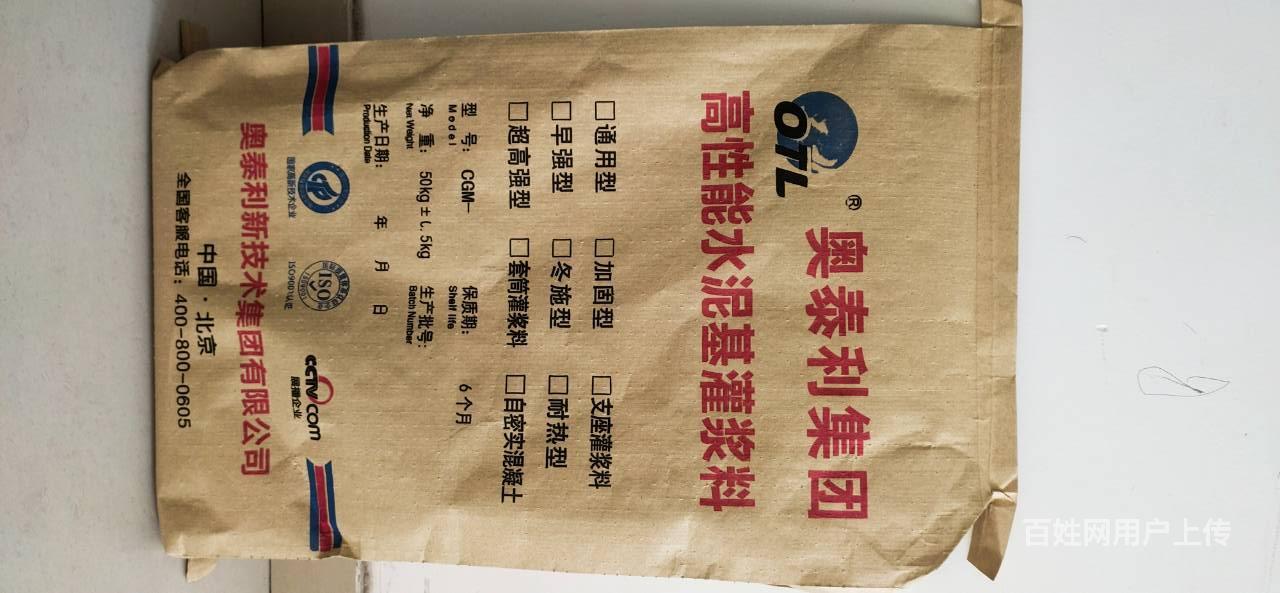 OTL ® 奥泰利集团
高性能水泥基灌浆料
□通用型 □加固型 □支座灌浆料
□早强型 □冬施型 □耐热型
□超高强型 □套筒灌浆料 □自密实混凝土
型 号: CGM- 保质期: 6个月
Model Shelf life
净 重: 50kg±1.5kg 生产批号:
Net Weight Batch Number
生产日期: 年 月 日
Production Date
国家高新技术企业
ISO
ISO9001认证
CCTV.com
展播企业
奥泰利新技术集团有限公司
中国·北京
全国客服电话: 400-800-0605
百姓网用户上传